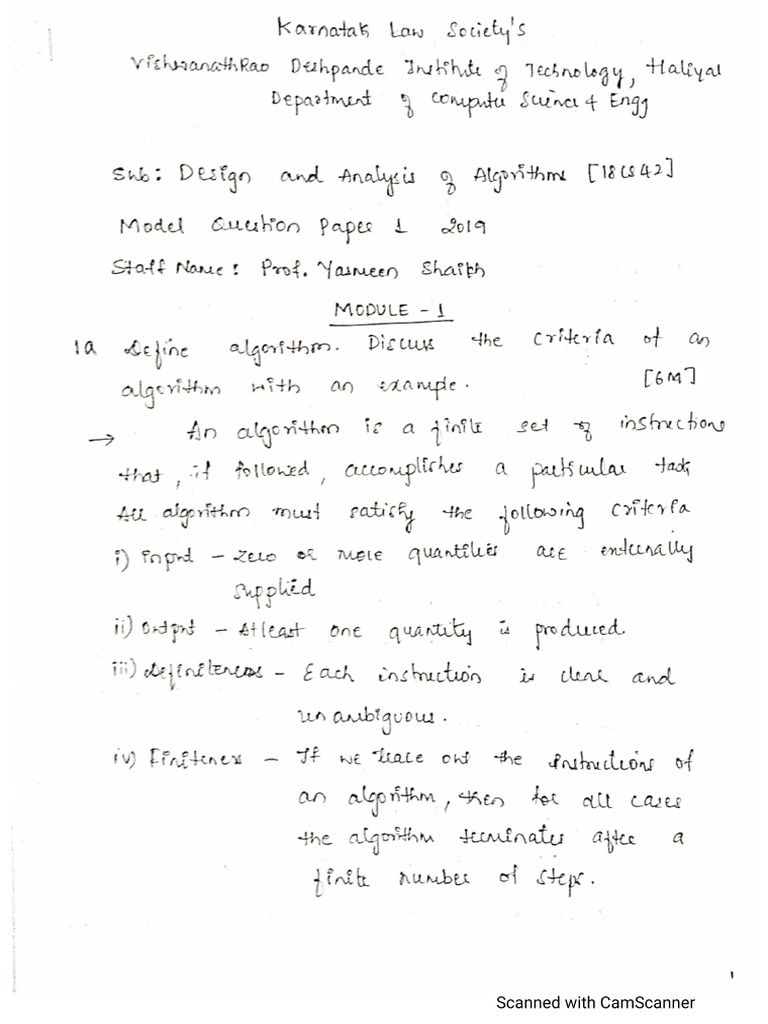 Karnatak Law Society's
VishwanathRao Deshpande Institute of Technology, Haliyal
Department of Computer Science & Engg
Sub: Design and Analysis of Algorithms [18CS42]
Model Question Paper 1 2019
Staff Name: Prof. Yasmeen Shaikh
MODULE - 1
1a Define algorithm. Discuss the criteria of an
algorithm with an example. [6M]
→ An algorithm is a finite set of instructions
that, if followed, accomplishes a particular task
All algorithm must satisfy the following criteria
i) input - Zero or more quantities are externally
supplied
ii) Output - Atleast one quantity is produced.
iii) Definiteness - Each instruction is clear and
unambiguous.
iv) Finiteness - If we trace out the instructions of
an algorithm, then for all cases
the algorithm terminates after a
finite number of steps.
1
Scanned with CamScanner